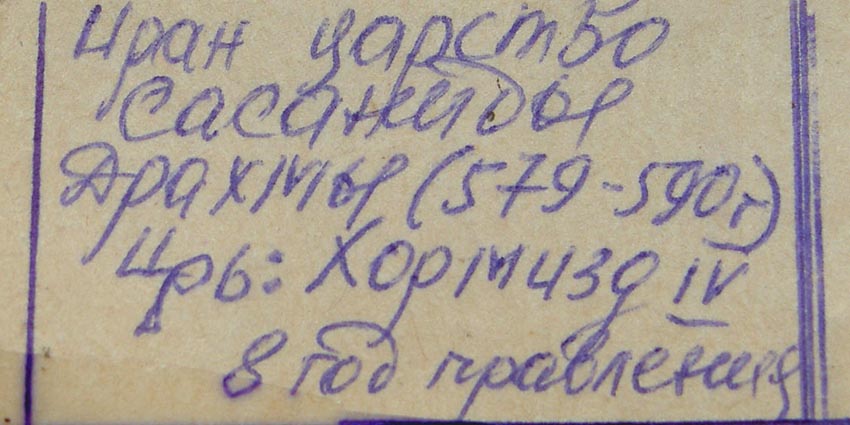 Иран царство
Сасаниды
Драхмы (579-590г)
Црь: Хормизд IV
8 год правления